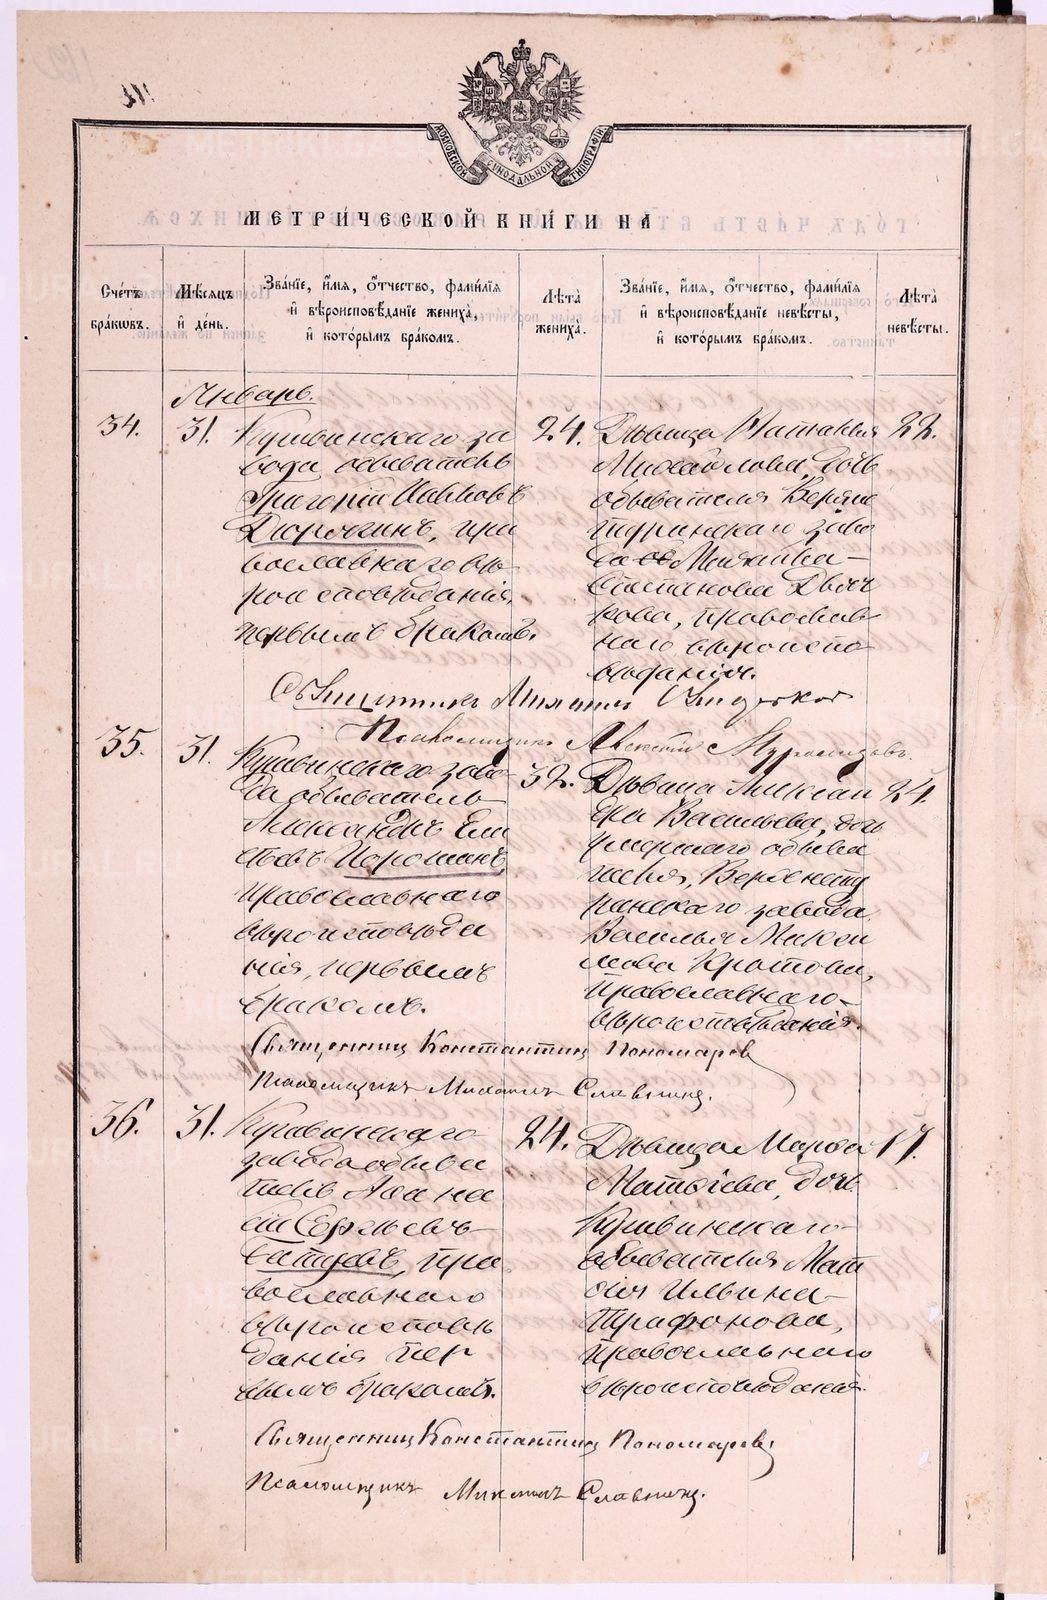 МОСКОВСКОЙ СѴНОДАЛЬНОЙ ТИПОГРАФІИ
МЕТРИ́ЧЕСКОЙ КНИ́ГИ НА
Сче́тъ бра́ковъ.
Мѣ́сяцъ и҆ де́нь.
Зва́нїе, и҆́мѧ, ѻ҆́тчество, фами́лїѧ и҆ вѣроисповѣ́данїе жениха̀, и҆ кото́рымъ бра́комъ.
Лѣ́та жениха̀.
Зва́нїе, и҆́мѧ, ѻ҆́тчество, фами́лїѧ и҆ вѣроисповѣ́данїе невѣ́сты, и҆ кото́рымъ бра́комъ.
Лѣ́та невѣ́сты.
Январь.
34.
31.
Кушвинскаго за
вода обыватель
Григорій Ивановъ
пра
вославнаго вѣ
роисповѣданія,
первымъ бракомъ.
24.
Дѣвица Наталья
Михайлова, дочь
обывателя Верхне
туринскаго заво
да
Степанова
православ
наго вѣроиспо
вѣданія.
22.
Священникъ
Псаломщикъ
35.
31.
Кушвинскаго заво
да обыватель
Александръ
Порошинъ,
православнаго
вѣроисповѣда
нія, первымъ
бракомъ.
32.
Дѣвица Александ
ра Васильева, дочь
умершаго обыва
теля, Верхнету
ринскаго завода
Василья Макси
мова Кротова,
православнаго
вѣроисповѣданія.
24.
Священникъ Константинъ Пономаревъ
Псаломщикъ Михаилъ Славнинъ.
36.
31.
Кушвинскаго
завода обыва
тель Афана
сій Сергѣевъ
пра
вославнаго
вѣроисповѣ
данія пер
вымъ бракомъ.
24.
Дѣвица Марфа
Матвіева, дочь
Кушвинскаго
обывателя Мат
вія Ильина
Трифонова,
православнаго
вѣроисповѣданія.
17.
Священникъ Константинъ Пономаревъ
Псаломщикъ Михаилъ Славнинъ.